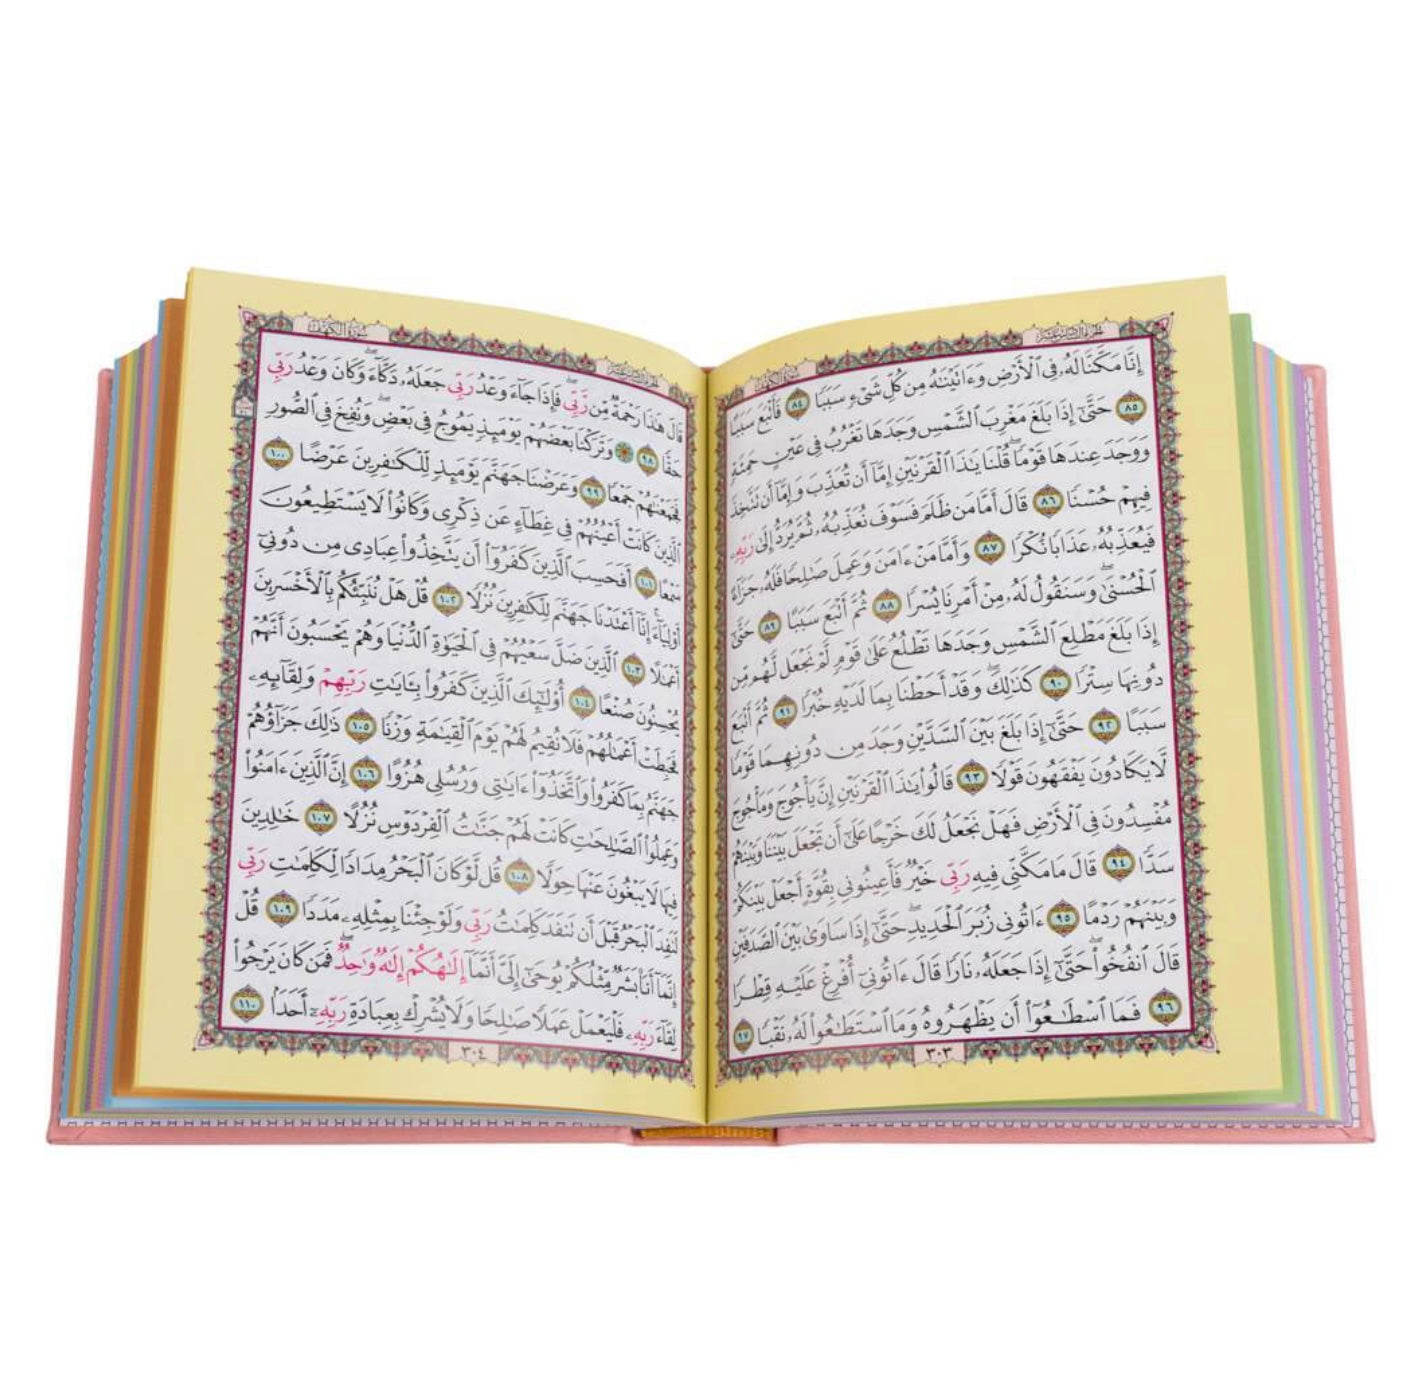 الجزء السادس عشر
سورة الكهف
إِنَّا مَكَّنَّا لَهُۥ فِى ٱلْأَرْضِ وَءَاتَيْنَٰهُ مِن كُلِّ شَىْءٍ سَبَبًا ٨٤ فَأَتْبَعَ سَبَبًا
٨٥ حَتَّىٰٓ إِذَا بَلَغَ مَغْرِبَ ٱلشَّمْسِ وَجَدَهَا تَغْرُبُ فِى عَيْنٍ حَمِئَةٍ
وَوَجَدَ عِندَهَا قَوْمًا ۗ قُلْنَا يَٰذَا ٱلْقَرْنَيْنِ إِمَّآ أَن تُعَذِّبَ وَإِمَّآ أَن تَتَّخِذَ
فِيهِمْ حُسْنًا ٨٦ قَالَ أَمَّا مَن ظَلَمَ فَسَوْفَ نُعَذِّبُهُۥ ثُمَّ يُرَدُّ إِلَىٰ رَبِّهِۦ
فَيُعَذِّبُهُۥ عَذَابًا نُّكْرًا ٨٧ وَأَمَّا مَنْ ءَامَنَ وَعَمِلَ صَٰلِحًا فَلَهُۥ جَزَآءً
ٱلْحُسْنَىٰ ۖ وَسَنَقُولُ لَهُۥ مِنْ أَمْرِنَا يُسْرًا ٨٨ ثُمَّ أَتْبَعَ سَبَبًا ٨٩ حَتَّىٰٓ
إِذَا بَلَغَ مَطْلِعَ ٱلشَّمْسِ وَجَدَهَا تَطْلُعُ عَلَىٰ قَوْمٍ لَّمْ نَجْعَل لَّهُم مِّن
دُونِهَا سِتْرًا ٩٠ كَذَٰلِكَ وَقَدْ أَحَطْنَا بِمَا لَدَيْهِ خُبْرًا ٩١ ثُمَّ أَتْبَعَ
سَبَبًا ٩٢ حَتَّىٰٓ إِذَا بَلَغَ بَيْنَ ٱلسَّدَّيْنِ وَجَدَ مِن دُونِهِمَا قَوْمًا
لَّا يَكَادُونَ يَفْقَهُونَ قَوْلًا ٩٣ قَالُوا۟ يَٰذَا ٱلْقَرْنَيْنِ إِنَّ يَأْجُوجَ وَمَأْجُوجَ
مُفْسِدُونَ فِى ٱلْأَرْضِ فَهَلْ نَجْعَلُ لَكَ خَرْجًا عَلَىٰٓ أَن تَجْعَلَ بَيْنَنَا وَبَيْنَهُمْ
سَدًّا ٩٤ قَالَ مَا مَكَّنِّى فِيهِ رَبِّى خَيْرٌ فَأَعِينُونِى بِقُوَّةٍ أَجْعَلْ بَيْنَكُمْ
وَبَيْنَهُمْ رَدْمًا ٩٥ ءَاتُونِى زُبَرَ ٱلْحَدِيدِ ۖ حَتَّىٰٓ إِذَا سَاوَىٰ بَيْنَ ٱلصَّدَفَيْنِ
قَالَ ٱنفُخُوا۟ ۖ حَتَّىٰٓ إِذَا جَعَلَهُۥ نَارًا قَالَ ءَاتُونِىٓ أُفْرِغْ عَلَيْهِ قِطْرًا
٩٦ فَمَا ٱسْطَٰعُوٓا۟ أَن يَظْهَرُوهُ وَمَا ٱسْتَطَٰعُوا۟ لَهُۥ نَقْبًا ٩٧
٣٠٣
الجزء السادس عشر
سورة الكهف
قَالَ هَٰذَا رَحْمَةٌ مِّن رَّبِّى ۖ فَإِذَا جَآءَ وَعْدُ رَبِّى جَعَلَهُۥ دَكَّآءَ ۖ وَكَانَ وَعْدُ رَبِّى
حَقًّا ٩٨ وَتَرَكْنَا بَعْضَهُمْ يَوْمَئِذٍ يَمُوجُ فِى بَعْضٍ ۖ وَنُفِخَ فِى ٱلصُّورِ
فَجَمَعْنَٰهُمْ جَمْعًا ٩٩ وَعَرَضْنَا جَهَنَّمَ يَوْمَئِذٍ لِّلْكَٰفِرِينَ عَرْضًا ١٠٠
ٱلَّذِينَ كَانَتْ أَعْيُنُهُمْ فِى غِطَآءٍ عَن ذِكْرِى وَكَانُوا۟ لَا يَسْتَطِيعُونَ
سَمْعًا ١٠١ أَفَحَسِبَ ٱلَّذِينَ كَفَرُوٓا۟ أَن يَتَّخِذُوا۟ عِبَادِى مِن دُونِىٓ
أَوْلِيَآءَ ۚ إِنَّآ أَعْتَدْنَا جَهَنَّمَ لِلْكَٰفِرِينَ نُزُلًا ١٠٢ قُلْ هَلْ نُنَبِّئُكُم بِٱلْأَخْسَرِينَ
أَعْمَٰلًا ١٠٣ ٱلَّذِينَ ضَلَّ سَعْيُهُمْ فِى ٱلْحَيَوٰةِ ٱلدُّنْيَا وَهُمْ يَحْسَبُونَ أَنَّهُمْ
يُحْسِنُونَ صُنْعًا ١٠٤ أُو۟لَٰٓئِكَ ٱلَّذِينَ كَفَرُوا۟ بِـَٔايَٰتِ رَبِّهِمْ وَلِقَآئِهِۦ
فَحَبِطَتْ أَعْمَٰلُهُمْ فَلَا نُقِيمُ لَهُمْ يَوْمَ ٱلْقِيَٰمَةِ وَزْنًا ١٠٥ ذَٰلِكَ جَزَآؤُهُمْ
جَهَنَّمُ بِمَا كَفَرُوا۟ وَٱتَّخَذُوٓا۟ ءَايَٰتِى وَرُسُلِى هُزُوًا ١٠٦ إِنَّ ٱلَّذِينَ ءَامَنُوا۟
وَعَمِلُوا۟ ٱلصَّٰلِحَٰتِ كَانَتْ لَهُمْ جَنَّٰتُ ٱلْفِرْدَوْسِ نُزُلًا ١٠٧ خَٰلِدِينَ
فِيهَا لَا يَبْغُونَ عَنْهَا حِوَلًا ١٠٨ قُل لَّوْ كَانَ ٱلْبَحْرُ مِدَادًا لِّكَلِمَٰتِ رَبِّى
لَنَفِدَ ٱلْبَحْرُ قَبْلَ أَن تَنفَدَ كَلِمَٰتُ رَبِّى وَلَوْ جِئْنَا بِمِثْلِهِۦ مَدَدًا ١٠٩ قُلْ
إِنَّمَآ أَنَا۠ بَشَرٌ مِّثْلُكُمْ يُوحَىٰٓ إِلَىَّ أَنَّمَآ إِلَٰهُكُمْ إِلَٰهٌ وَٰحِدٌ ۖ فَمَن كَانَ يَرْجُوا۟
لِقَآءَ رَبِّهِۦ فَلْيَعْمَلْ عَمَلًا صَٰلِحًا وَلَا يُشْرِكْ بِعِبَادَةِ رَبِّهِۦٓ أَحَدًۢا ١١٠
٣٠٤